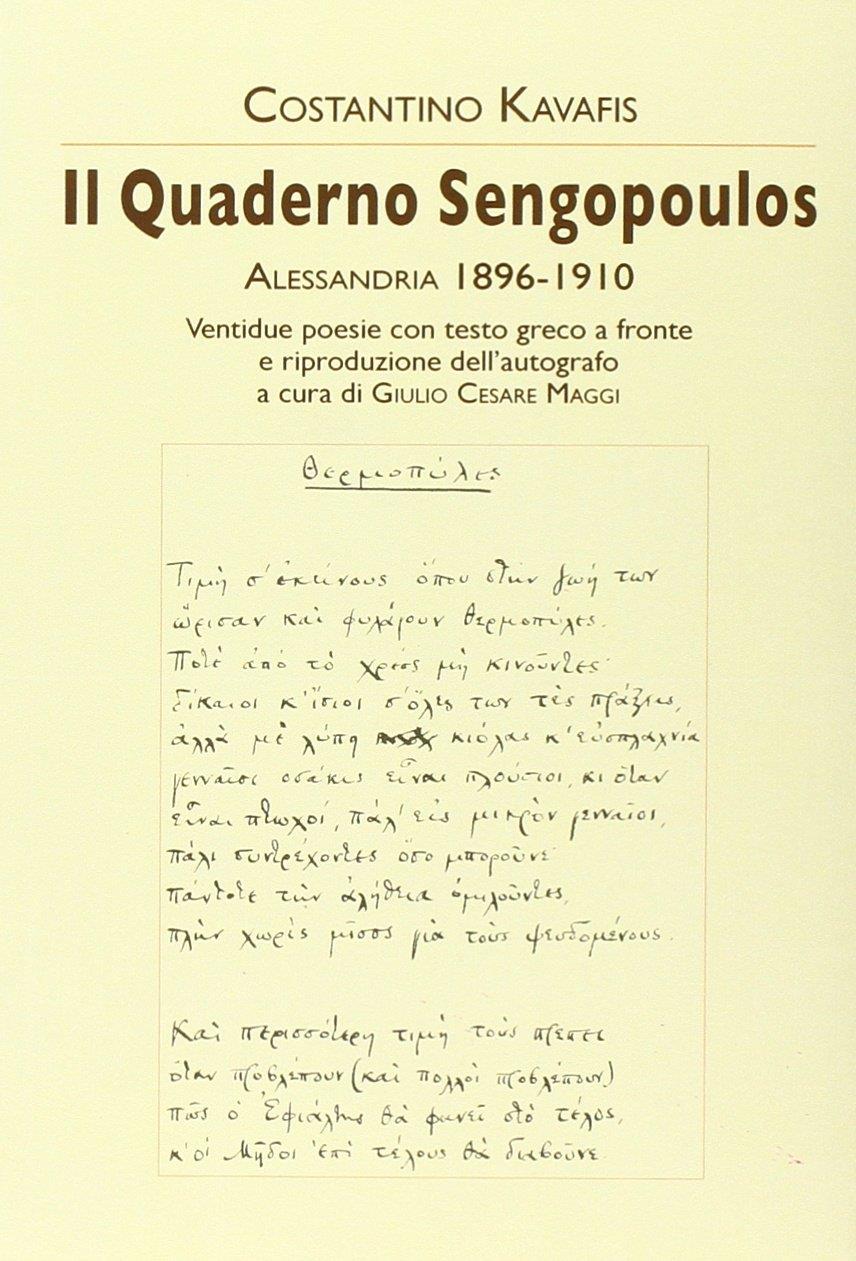 COSTANTINO KAVAFIS
Il Quaderno Sengopoulos
ALESSANDRIA 1896-1910
Ventidue poesie con testo greco a fronte
e riproduzione dell'autografo
a cura di GIULIO CESARE MAGGI
Θερμοπύλες
Τιμὴ σ' ἐκείνους ὅπου στὴν ζωή των
ὥρισαν καὶ φυλάγουν Θερμοπύλες.
Ποτὲ ἀπὸ τὸ χρέος μὴ κινοῦντες·
δίκαιοι κ' ἴσιοι σ' ὅλες των τὲς πράξεις,
ἀλλὰ μὲ λύπη κιόλας κ' εὐσπλαχνία
γενναῖοι ὁσάκις εἶναι πλούσιοι, κι ὅταν
εἶναι πτωχοί, πάλ' εἰς μικρὸν γενναῖοι,
πάλι συντρέχοντες ὅσο μποροῦνε·
πάντοτε τὴν ἀλήθεια ὁμιλοῦντες,
πλὴν χωρὶς μῖσος γιὰ τοὺς ψευδομένους.
Καὶ περισσότερη τιμὴ τοὺς πρέπει
ὅταν προβλέπουν (καὶ πολλοὶ προβλέπουν)
πῶς ὁ Ἐφιάλτης θὰ φανεῖ στὸ τέλος,
κ' οἱ Μῆδοι ἐπὶ τέλους θὰ διαβοῦνε.